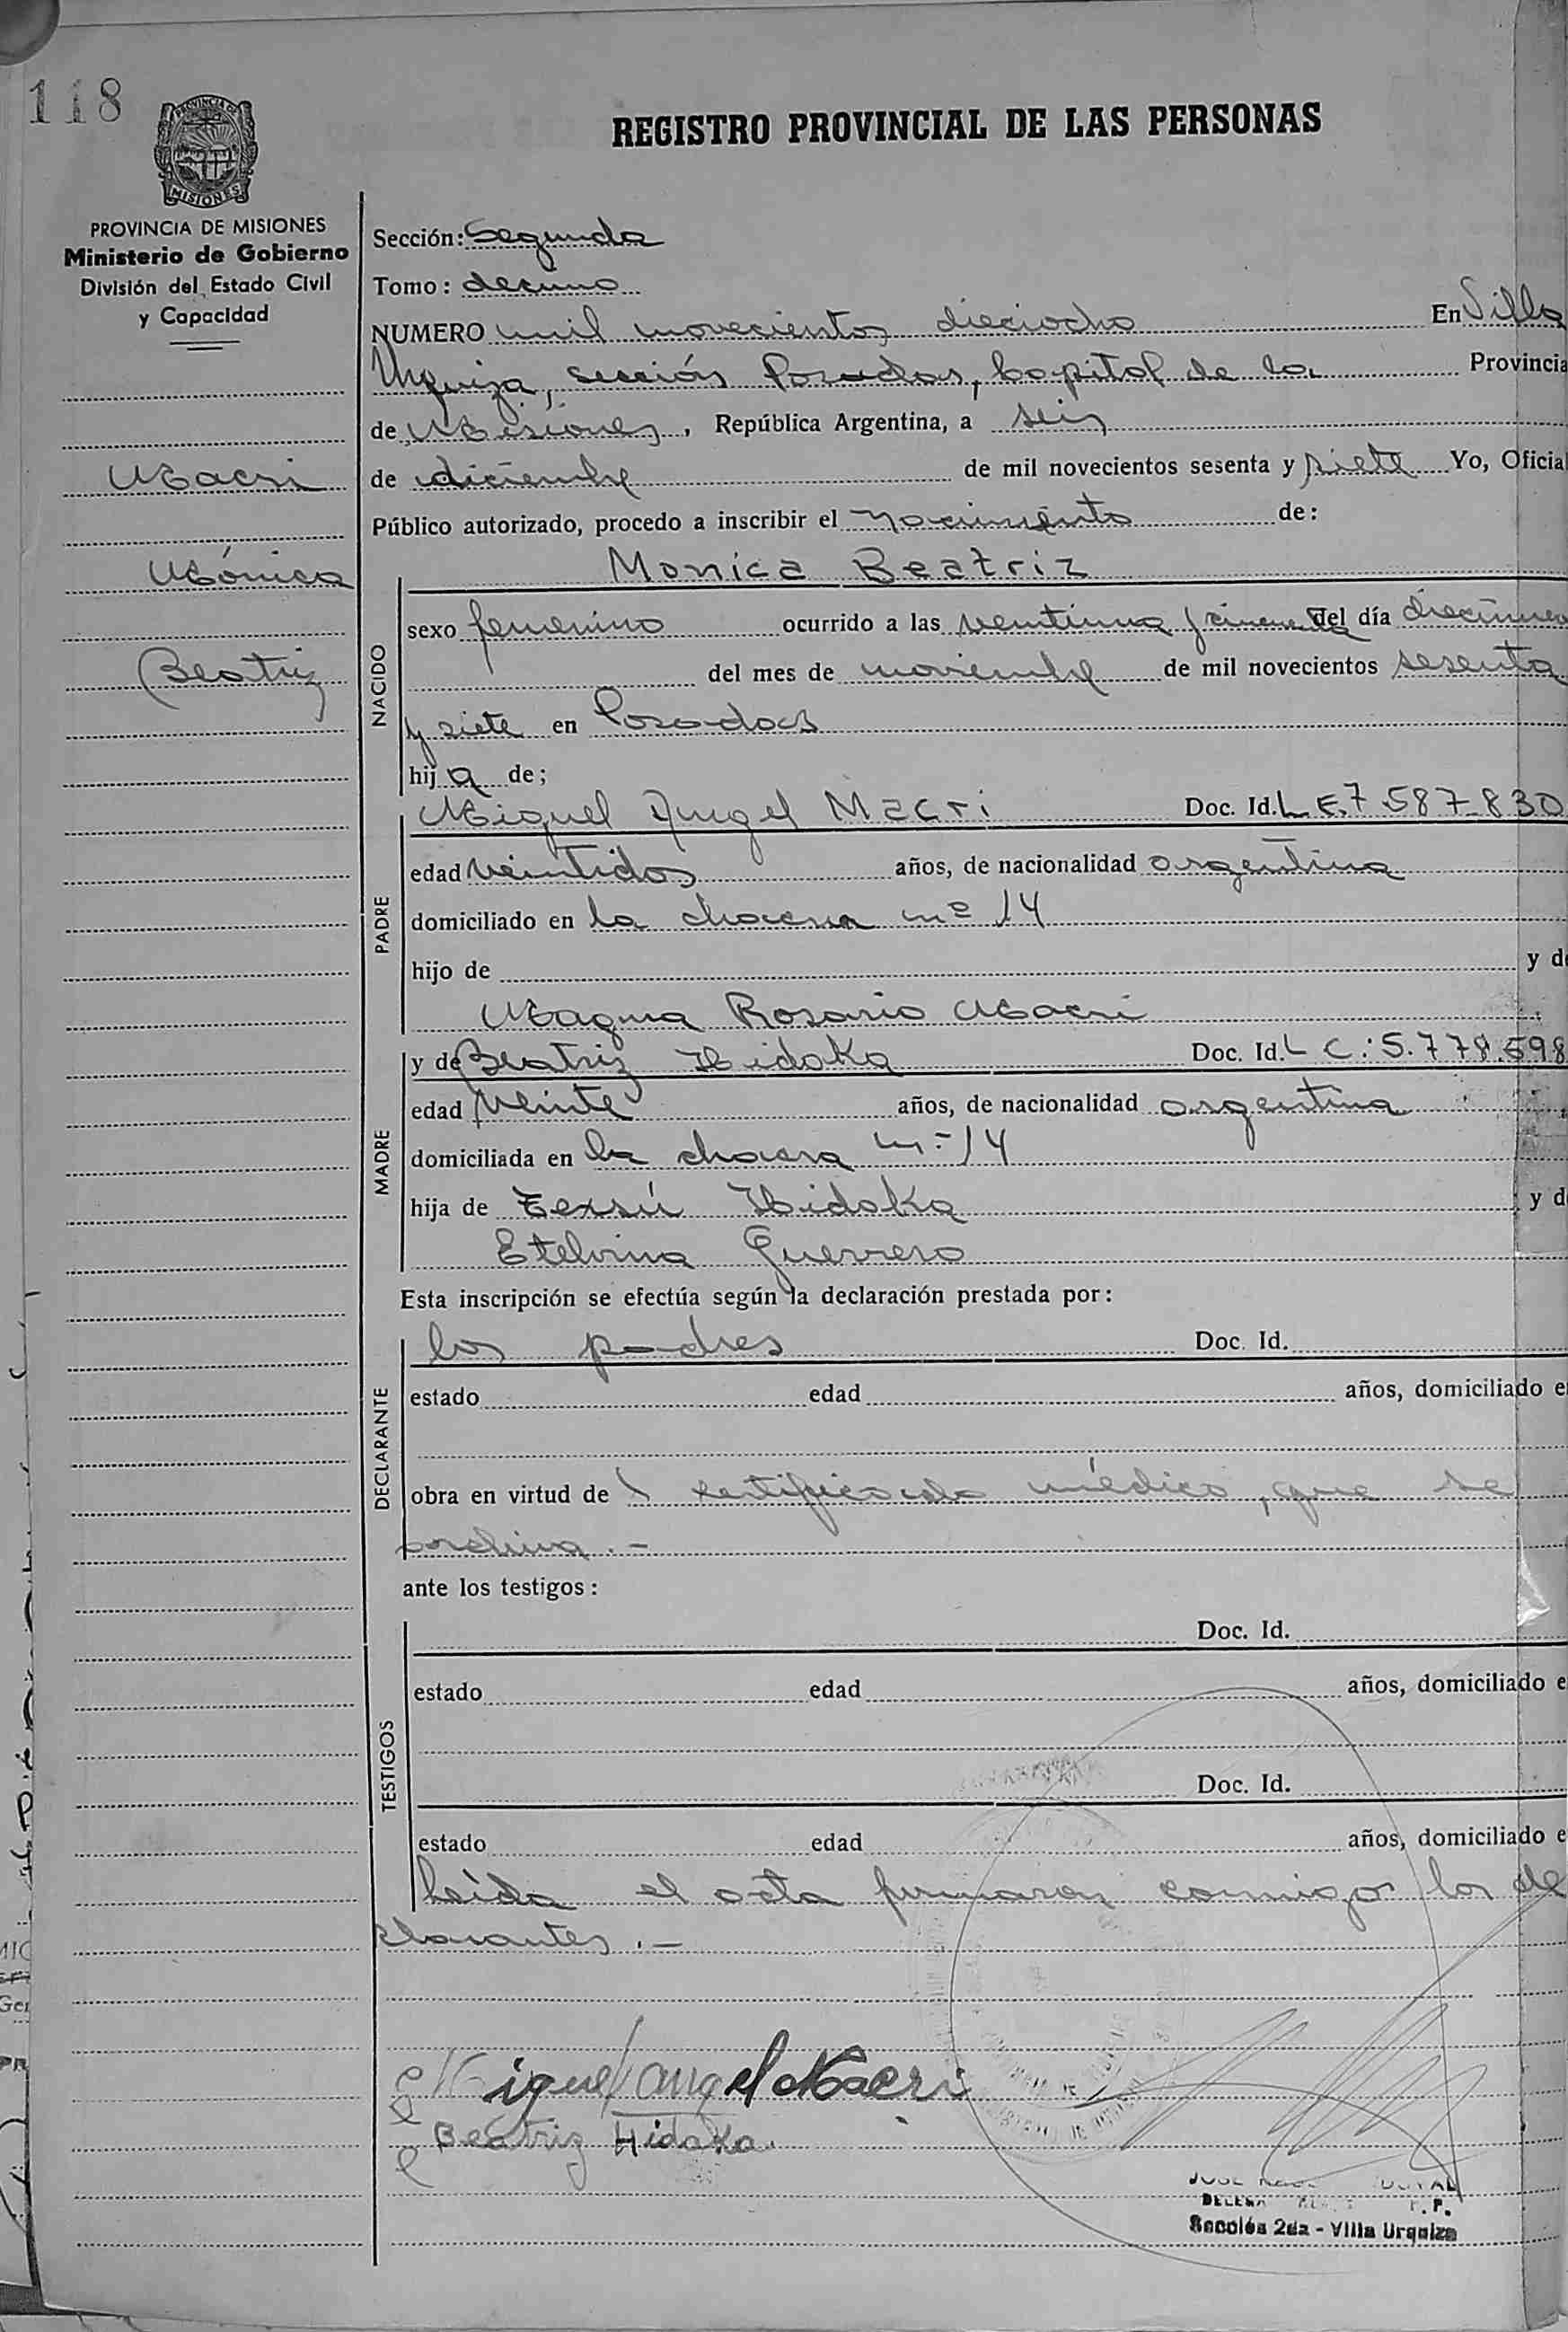 118
PROVINCIA DE
MISIONES
REGISTRO PROVINCIAL DE LAS PERSONAS
PROVINCIA DE MISIONES
Ministerio de Gobierno
División del Estado Civil
y Capacidad
Macri
Mónica
Beatriz
Sección: Segunda
Tomo: decimo
NUMERO mil novecientos dieciocho En Villa
Urquiza, sección Posadas, Capital de la Provincia
de Misiones, República Argentina, a seis
de diciembre de mil novecientos sesenta y siete Yo, Oficial
Público autorizado, procedo a inscribir el nacimiento de:
Monica Beatriz
NACIDO
sexo femenino ocurrido a las y del día
del mes de noviembre de mil novecientos sesenta
y siete en Posadas
hija de;
PADRE
Miguel Angel Macri Doc. Id. L E.7.587-830
edad veintidos años, de nacionalidad argentina
domiciliado en la chacra nº 14
hijo de y d
Magna Rosario Macri
MADRE
y de Beatriz Hidaka Doc. Id. L C: 5.778.598
edad veinte años, de nacionalidad argentina
domiciliada en la chacra nº 14
hija de Hidaka y d
Etelvina Guerrero
Esta inscripción se efectúa según la declaración prestada por:
DECLARANTE
los padres Doc. Id.
estado edad años, domiciliado e
obra en virtud de l certificado médico, que se
archiva.-
ante los testigos:
TESTIGOS
Doc. Id.
estado edad años, domiciliado e
Doc. Id.
estado edad años, domiciliado e
Leída el acta firmaron conmigo los de
clarantes.-
Miguel angel Macri
Beatriz Hidaka.
Sección 2da - Villa Urquiza